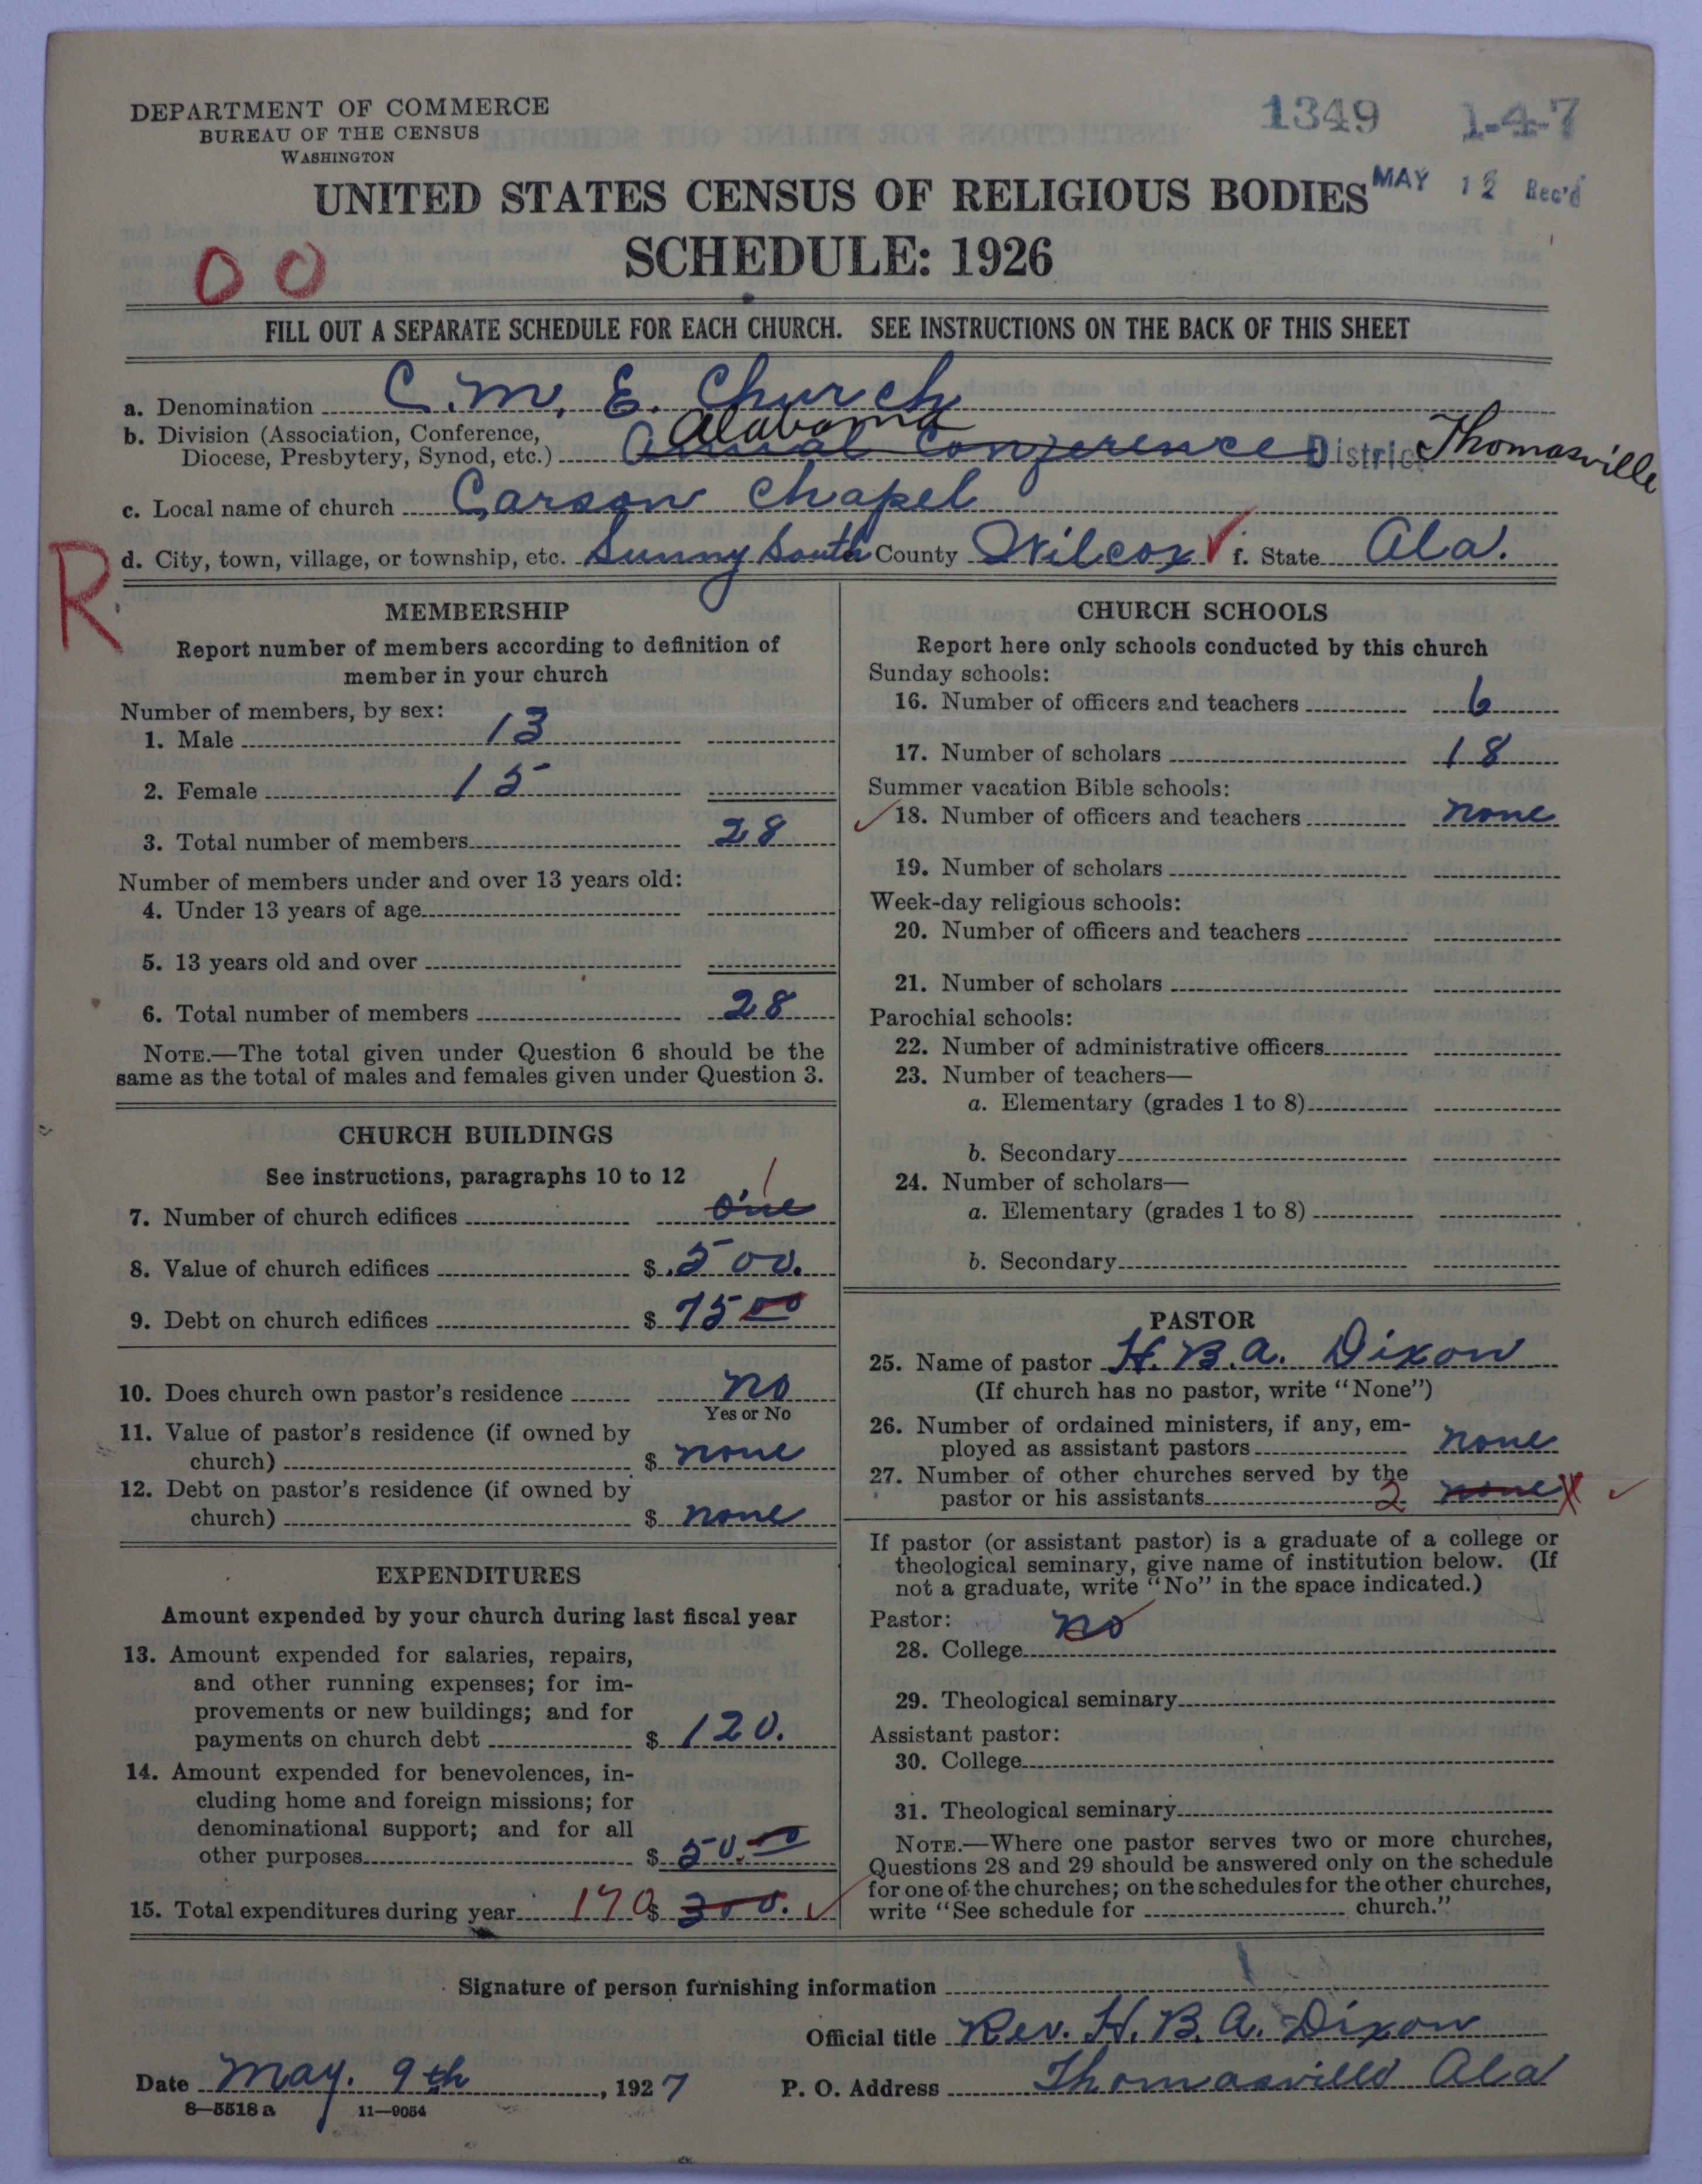 DEPARTMENT OF COMMERCE
BUREAU OF THE CENSUS
WASHINGTON
1349 1-4-7
UNITED STATES CENSUS OF RELIGIOUS BODIES
MAY 12 Rec'd
SCHEDULE: 1926
00
FILL OUT A SEPARATE SCHEDULE FOR EACH CHURCH. SEE INSTRUCTIONS ON THE BACK OF THIS SHEET
a. Denomination C. M. E. Church
b. Division (Association, Conference, Alabama
Diocese, Presbytery, Synod, etc.) Annual Conference District Thomasville
c. Local name of church Carson Chapel
d. City, town, village, or township, etc. Sunny South County Wilcox f. State Ala.
R
MEMBERSHIP
Report number of members according to definition of
member in your church
Number of members, by sex:
1. Male 13
2. Female 15
3. Total number of members 28
Number of members under and over 13 years old:
4. Under 13 years of age
5. 13 years old and over
6. Total number of members 28
NOTE.—The total given under Question 6 should be the
same as the total of males and females given under Question 3.
CHURCH BUILDINGS
See instructions, paragraphs 10 to 12
1
7. Number of church edifices one
8. Value of church edifices $ 500.
9. Debt on church edifices $ 75 00
10. Does church own pastor's residence no
Yes or No
11. Value of pastor's residence (if owned by
church) $ none
12. Debt on pastor's residence (if owned by
church) $ none
EXPENDITURES
Amount expended by your church during last fiscal year
13. Amount expended for salaries, repairs,
and other running expenses; for im-
provements or new buildings; and for
payments on church debt $ 120.
14. Amount expended for benevolences, in-
cluding home and foreign missions; for
denominational support; and for all
other purposes $ 50.00
15. Total expenditures during year 170 $ 300.
CHURCH SCHOOLS
Report here only schools conducted by this church
Sunday schools:
16. Number of officers and teachers 6
17. Number of scholars 18
Summer vacation Bible schools:
18. Number of officers and teachers none
19. Number of scholars
Week-day religious schools:
20. Number of officers and teachers
21. Number of scholars
Parochial schools:
22. Number of administrative officers
23. Number of teachers—
a. Elementary (grades 1 to 8)
b. Secondary
24. Number of scholars—
a. Elementary (grades 1 to 8)
b. Secondary
PASTOR
25. Name of pastor H. B. A. Dixon
(If church has no pastor, write "None")
26. Number of ordained ministers, if any, em-
ployed as assistant pastors none
27. Number of other churches served by the
pastor or his assistants 2 none X
If pastor (or assistant pastor) is a graduate of a college or
theological seminary, give name of institution below. (If
not a graduate, write "No" in the space indicated.)
Pastor: no
28. College
29. Theological seminary
Assistant pastor:
30. College
31. Theological seminary
NOTE.—Where one pastor serves two or more churches,
Questions 28 and 29 should be answered only on the schedule
for one of the churches; on the schedules for the other churches,
write "See schedule for church."
Signature of person furnishing information
Official title Rev. H. B. A. Dixon
Date May. 9th, 1927 P. O. Address Thomasville Ala
8—5518 a 11—9054